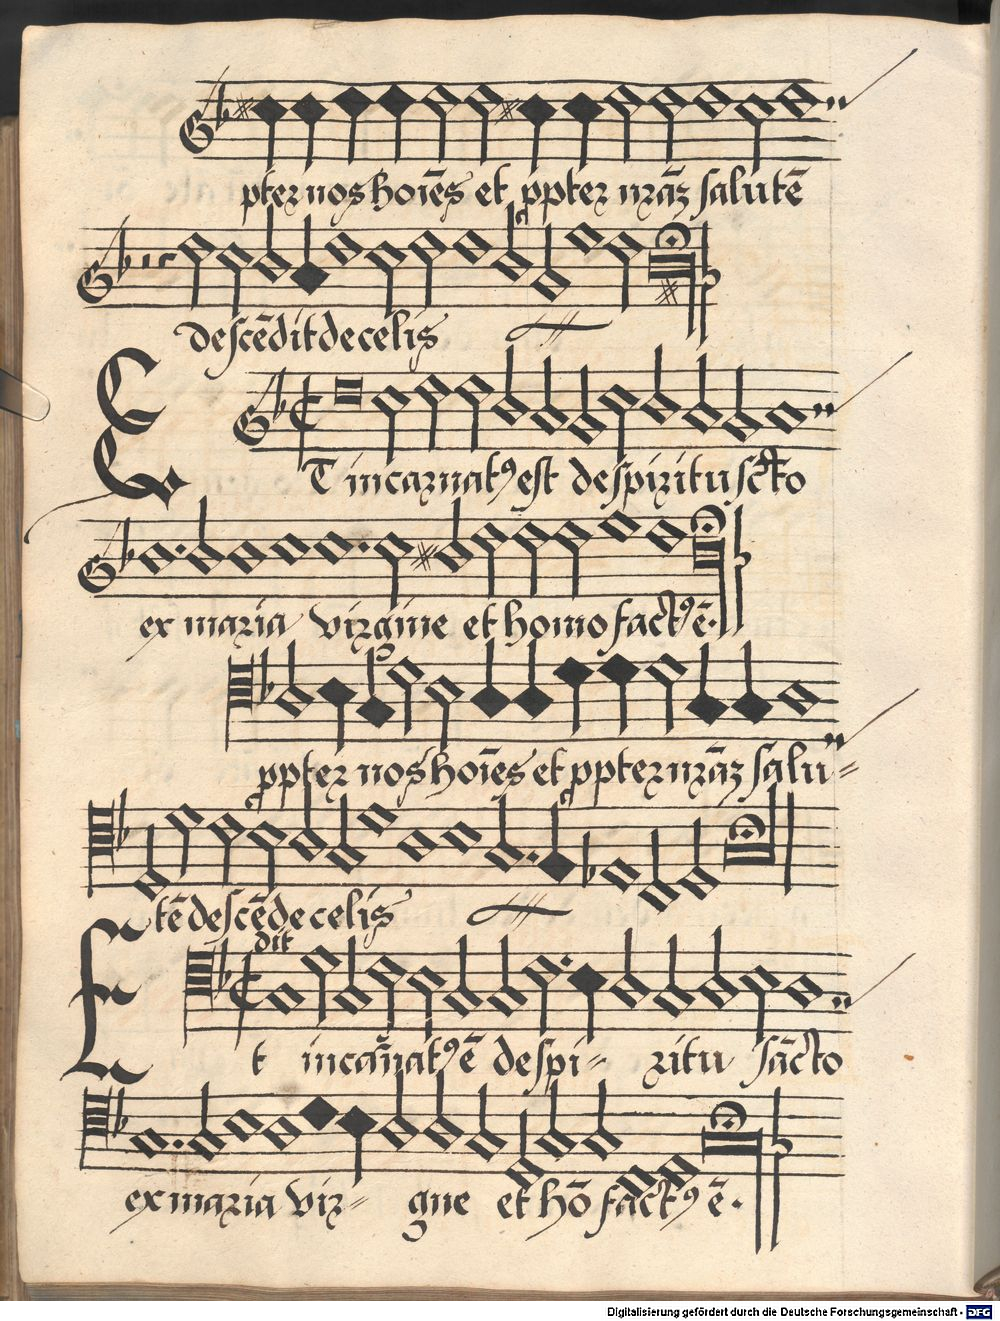 pter nos hoīēs et ꝓpter nr̄aꝫ salutē
descēdit de celis
ET incarnatꝰ est de spiritu scto
ex maria virgine et homo factꝰ ē.
ꝓpter nos hoīēs et ꝓpter nr̄aꝫ salu=
tē descēde celis
dit
Et incar̄natꝰ ē de spi= ritu sācto
ex maria vir= gne et hō factꝰ ē.
Digitalisierung gefördert durch die Deutsche Forschungsgemeinschaft - DFG